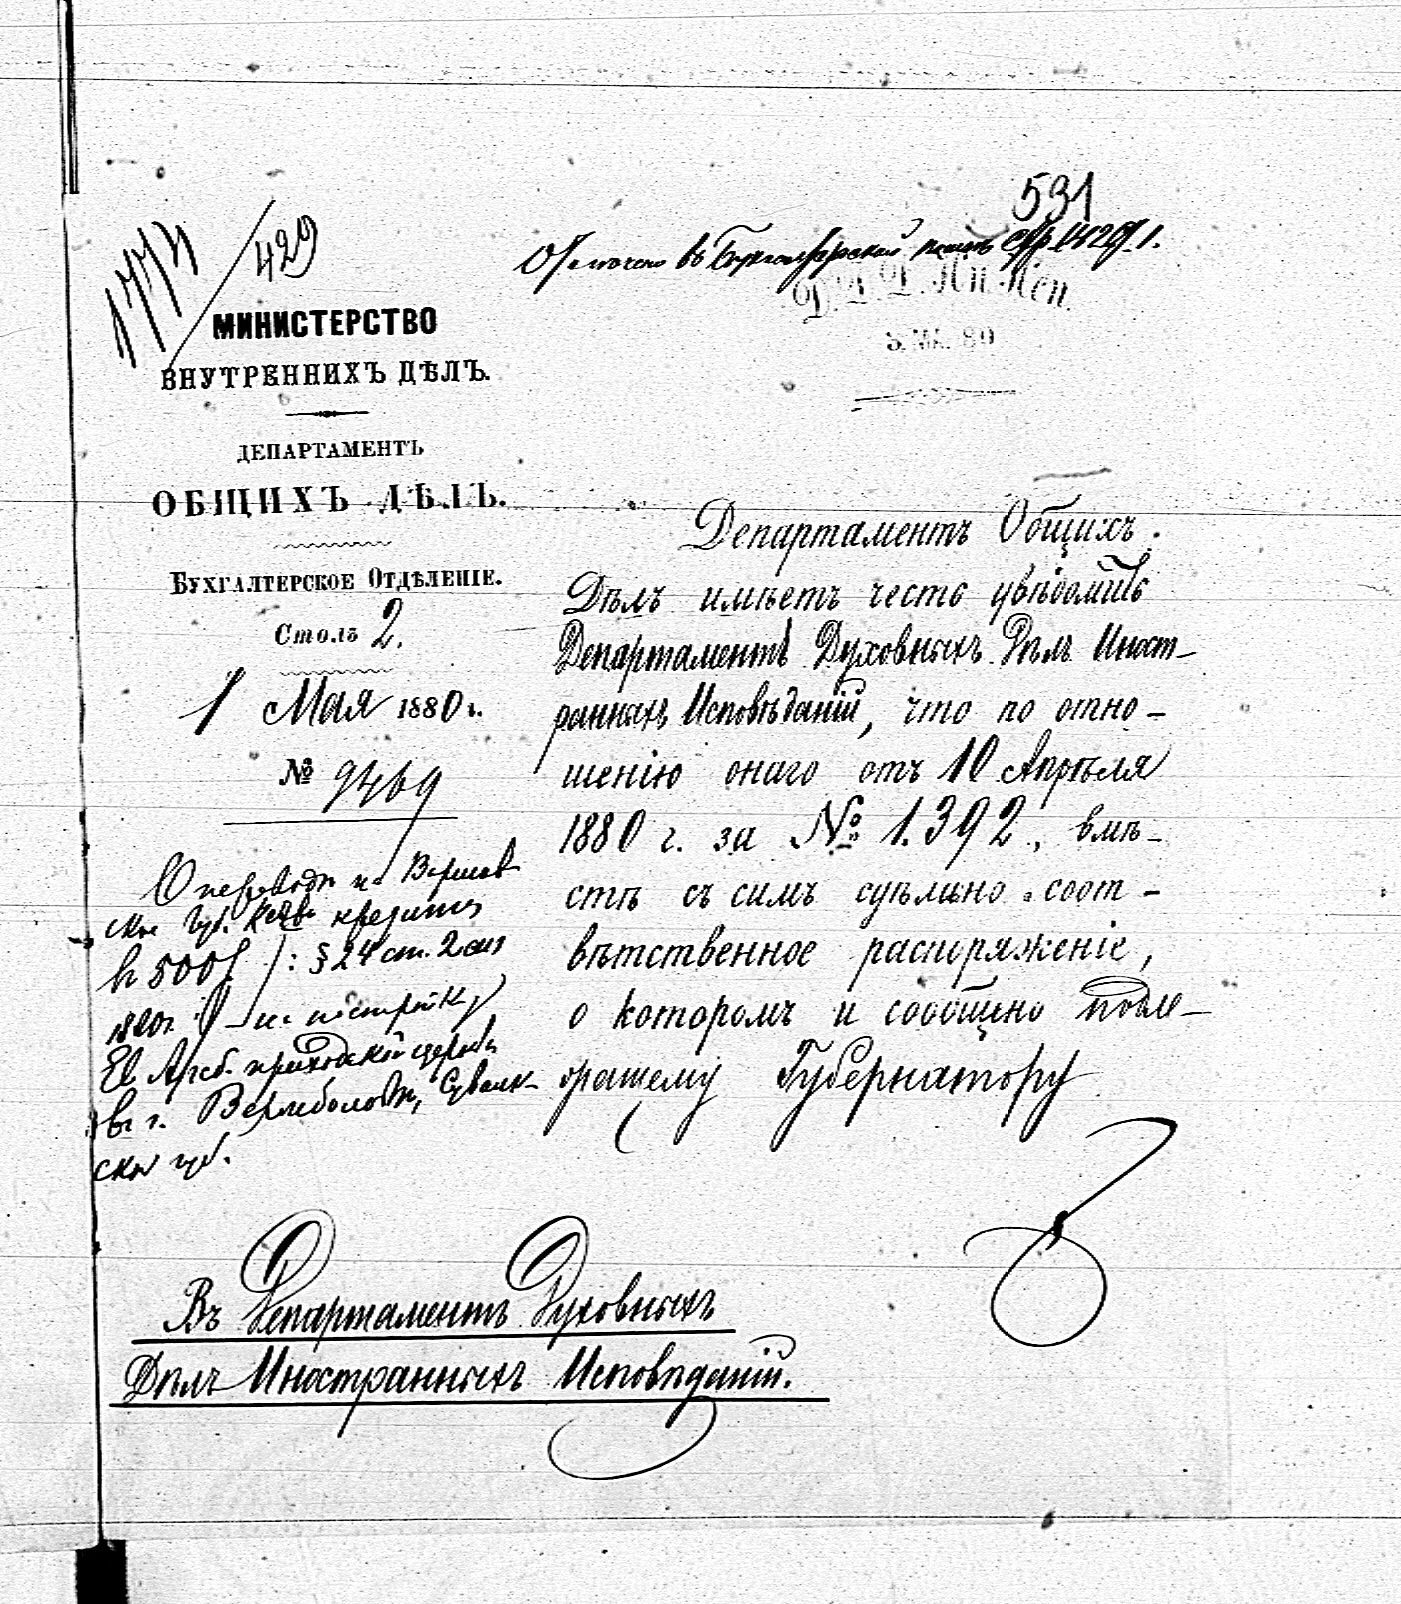 531
1774
429
Отмечено въ Бухгалтерской книгѣ стр. 1429.
Д. Д. Д. Ин. Исп.
МИНИСТЕРСТВО
ВНУТРЕННИХЪ ДѢЛЪ.
ДЕПАРТАМЕНТЪ
ОБЩИХЪ ДѢЛЪ.
БУХГАЛТЕРСКОЕ ОТДѢЛЕНІЕ.
Столъ 2.
1 Мая 1880 г.
№ 9469
О переводѣ на Варшав
ское Губ. Казн. кредита
въ 500 р. /: § 24 ст. 2 смѣ
1880 г. на постройку
Ев. Аугсб. приходской церкви
въ г. Вержболовѣ, Сувалк-
ской губ.
Департаментъ Общихъ
Дѣлъ имѣетъ честь увѣдомить
Департаментъ Духовныхъ Дѣлъ Иност-
ранныхъ Исповѣданій, что по отно-
шенію онаго отъ 10 Апрѣля
1880 г. за № 1.392, вмѣ-
стѣ съ симъ сдѣлано соот-
вѣтственное распоряженіе,
о которомъ и сообщено подле-
жащему Губернатору
Въ Департаментъ Духовныхъ
Дѣлъ Иностранныхъ Исповѣданій.